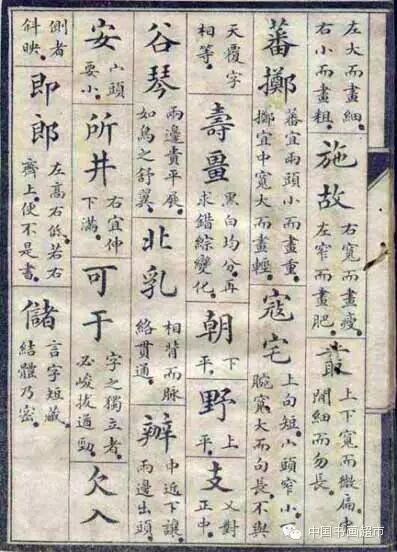 左大而畫細。
右小而畫粗。
施故
右寬而畫瘦。
左窄而畫肥。
叢
上下寬而微扁。中
間細而勿長。
蕃擲
蕃宜兩頭小而畫重。
擲宜中寬大而畫輕。
寇宅
上句短。宀頭窄小。
腕寬大而句長。不與
天覆字
相等。
壽畺
黑白均分。再
求錯綜變化。
朝
下
平。
野
上
平。
支
又對
正中。
谷琴
兩邊貴平展。
如鳥之舒翼。
北乳
相背而脈
絡貫通。
辦
中近下讓
兩邊出頭。
安
宀頭
要小。
所井
右宜伸
下滿。
可于
字之獨立者。
必峻拔遒勁。
欠入
側者
斜映。
即郎
左高右低。若右
齊上。便不是書。
儲
言字短藏。
結體乃密。
中国书画超市